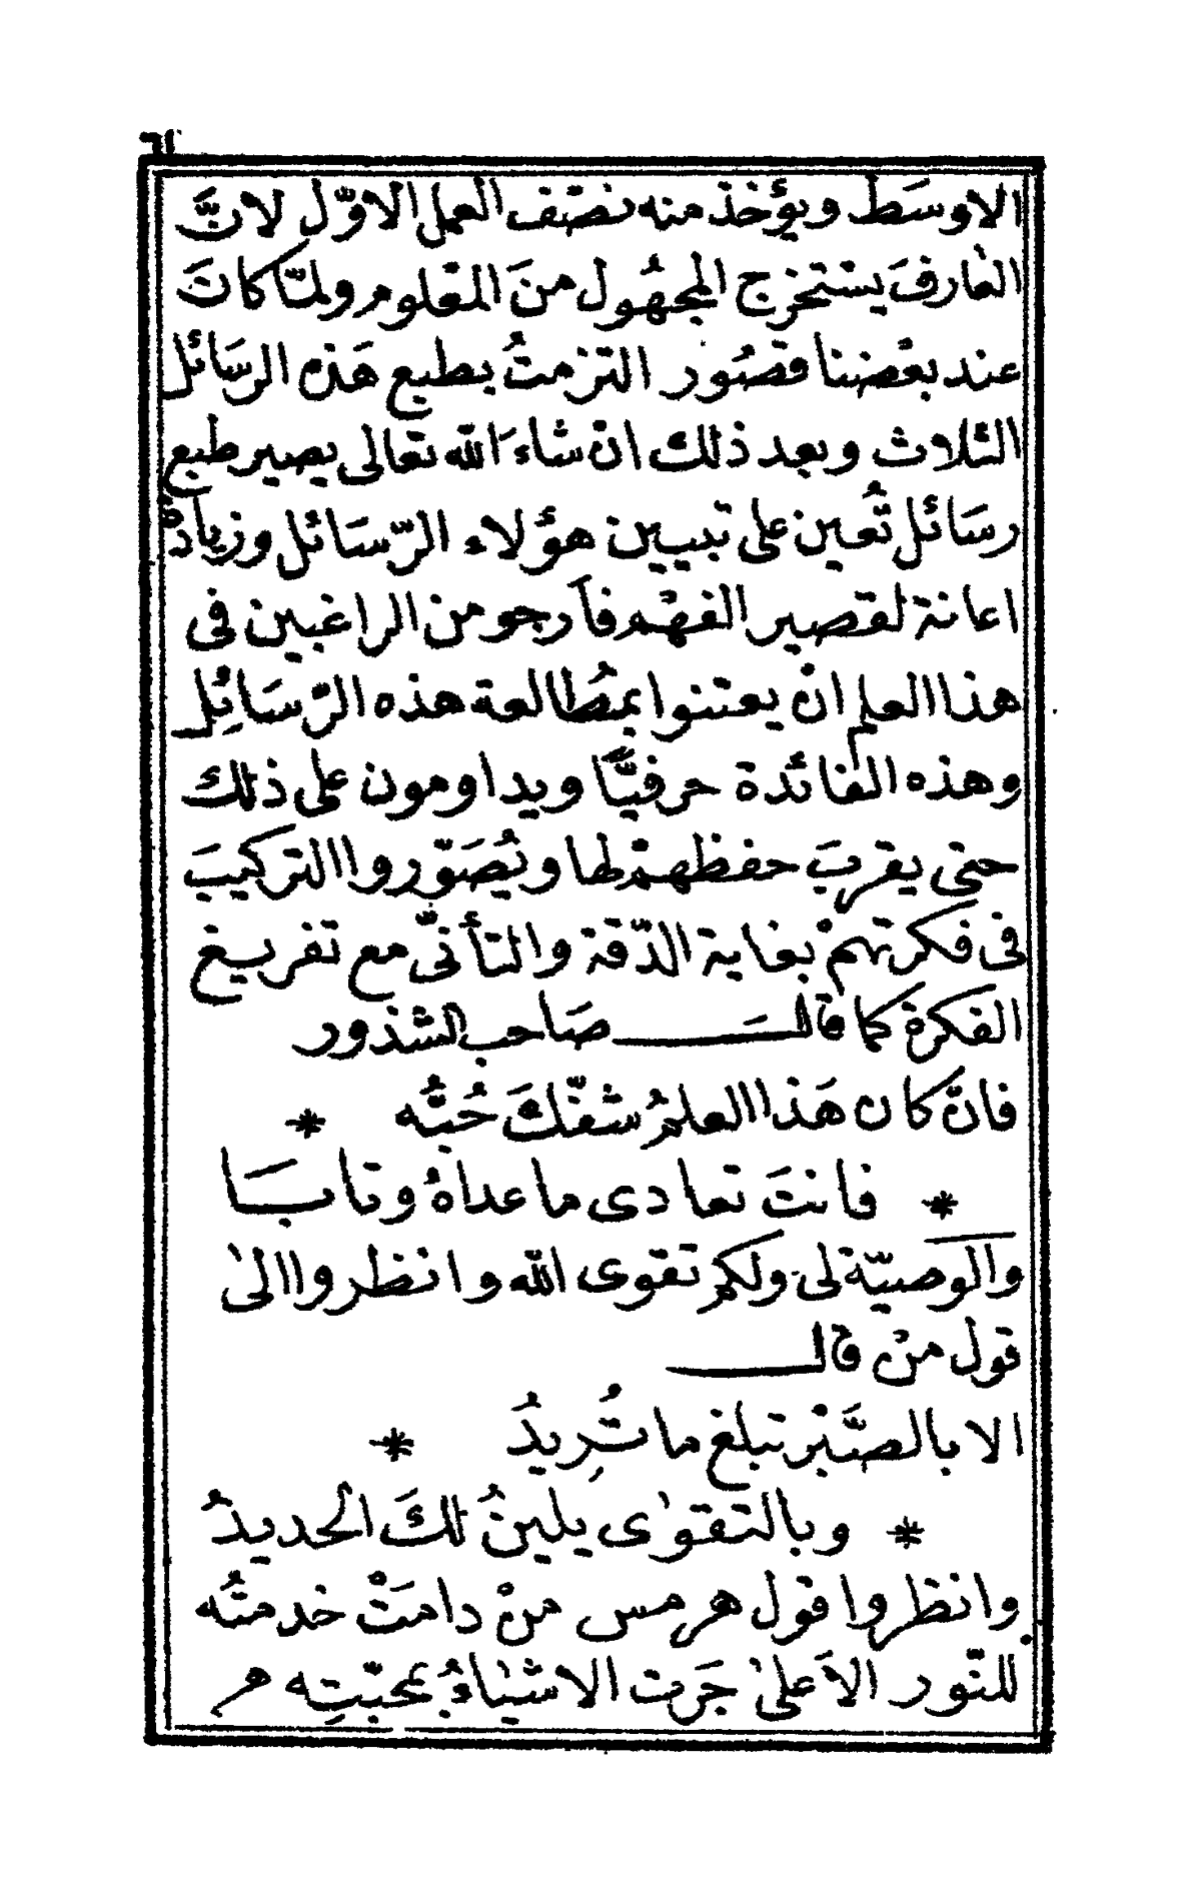 ٦١
الاوسَط ويؤخذ منه نصْف العمل الاوّل لانَّ
العارفَ يستخرج المجهُول منَ المعْلوم ولمّا كانَ
عند بعْضننا قصُور التزمتُ بطبع هَذه الرسَائل
الثلاث وبعد ذلك انْ شاءَ الله تعالى يصير طبع
رسَائل تُعين على تبيين هؤلاء الرّسَائل وزيادة
اعانة لقصير الفهْم فأرجو من الراغبين فى
هذا العلم انْ يعتنوا بمُطالعة هذه الرّسَائِل
وهذه الفائدة حرفيًّا ويداومون على ذلك
حتى يقربَ حفظهمْ لها ويُصَوّروا التركيبَ
فى فكرتهمْ بغاية الدّقة والتأنّى مع تفريغ
الفكرة كما قالَ صَاحب الشذور
فانّ كان هَذا العلمُ شفّكَ حُبُّه *
* فانتَ تعادى ماعداهُ وتابَا
والوصيّة لى ولكم تقوى الله وانظروا الىٰ
قول منْ قال
الا بالصَّبْر تبلغ ما تُرِيدُ *
* وبالتقوٰى يلينُ لكَ الحديدُ
وانظروا قول هرمس منْ دامَتْ خدمتُه
للنّور الأعلىٰ جَرت الاشيٰاءُ بمحبّتِه هر